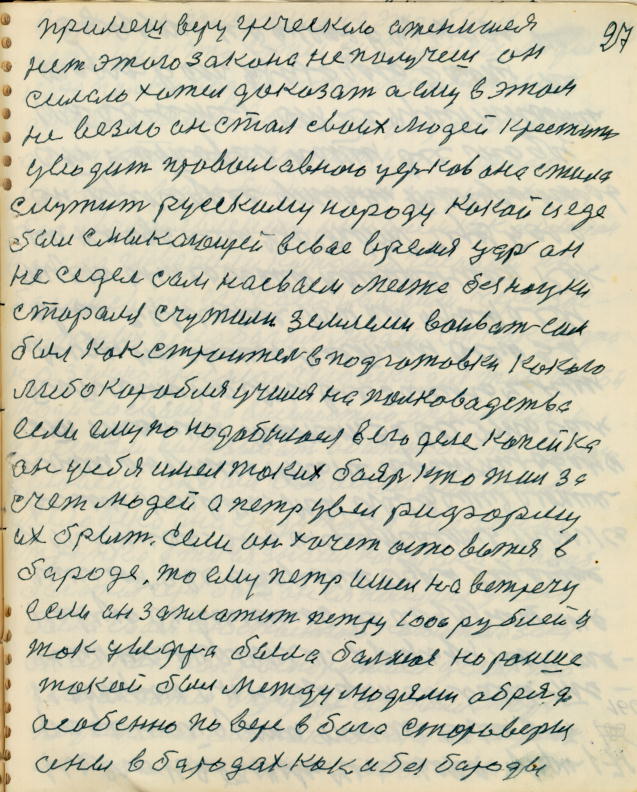 27
примеш веру греческого а женишся
нет этого закона не получеш он
силсло хотел доказат а ему в этом
не везло он стал своих людей крестит
уводит провославного церков она стала
служит русскому народу кокой и где
был смыкающей всвое время царь он
не седел сам насваем месте без науки
старался счужими землеми воеват сам
был как строител в подготовки какого
либо коробля училя на полководства
если ему по надобылося в его деле копейка
он у себя имел таких бояр кто жил за
счет людей а петр увел риформу
их брит. если он хочет астоватся в
бароде. то ему петр ишел на встречу
если он заплатит петру 1000 рублей а
ток цыфра была балшая но раньше
такой был между людями обряд
особенно по вере в бога староверы
они в бародах как и без бароды